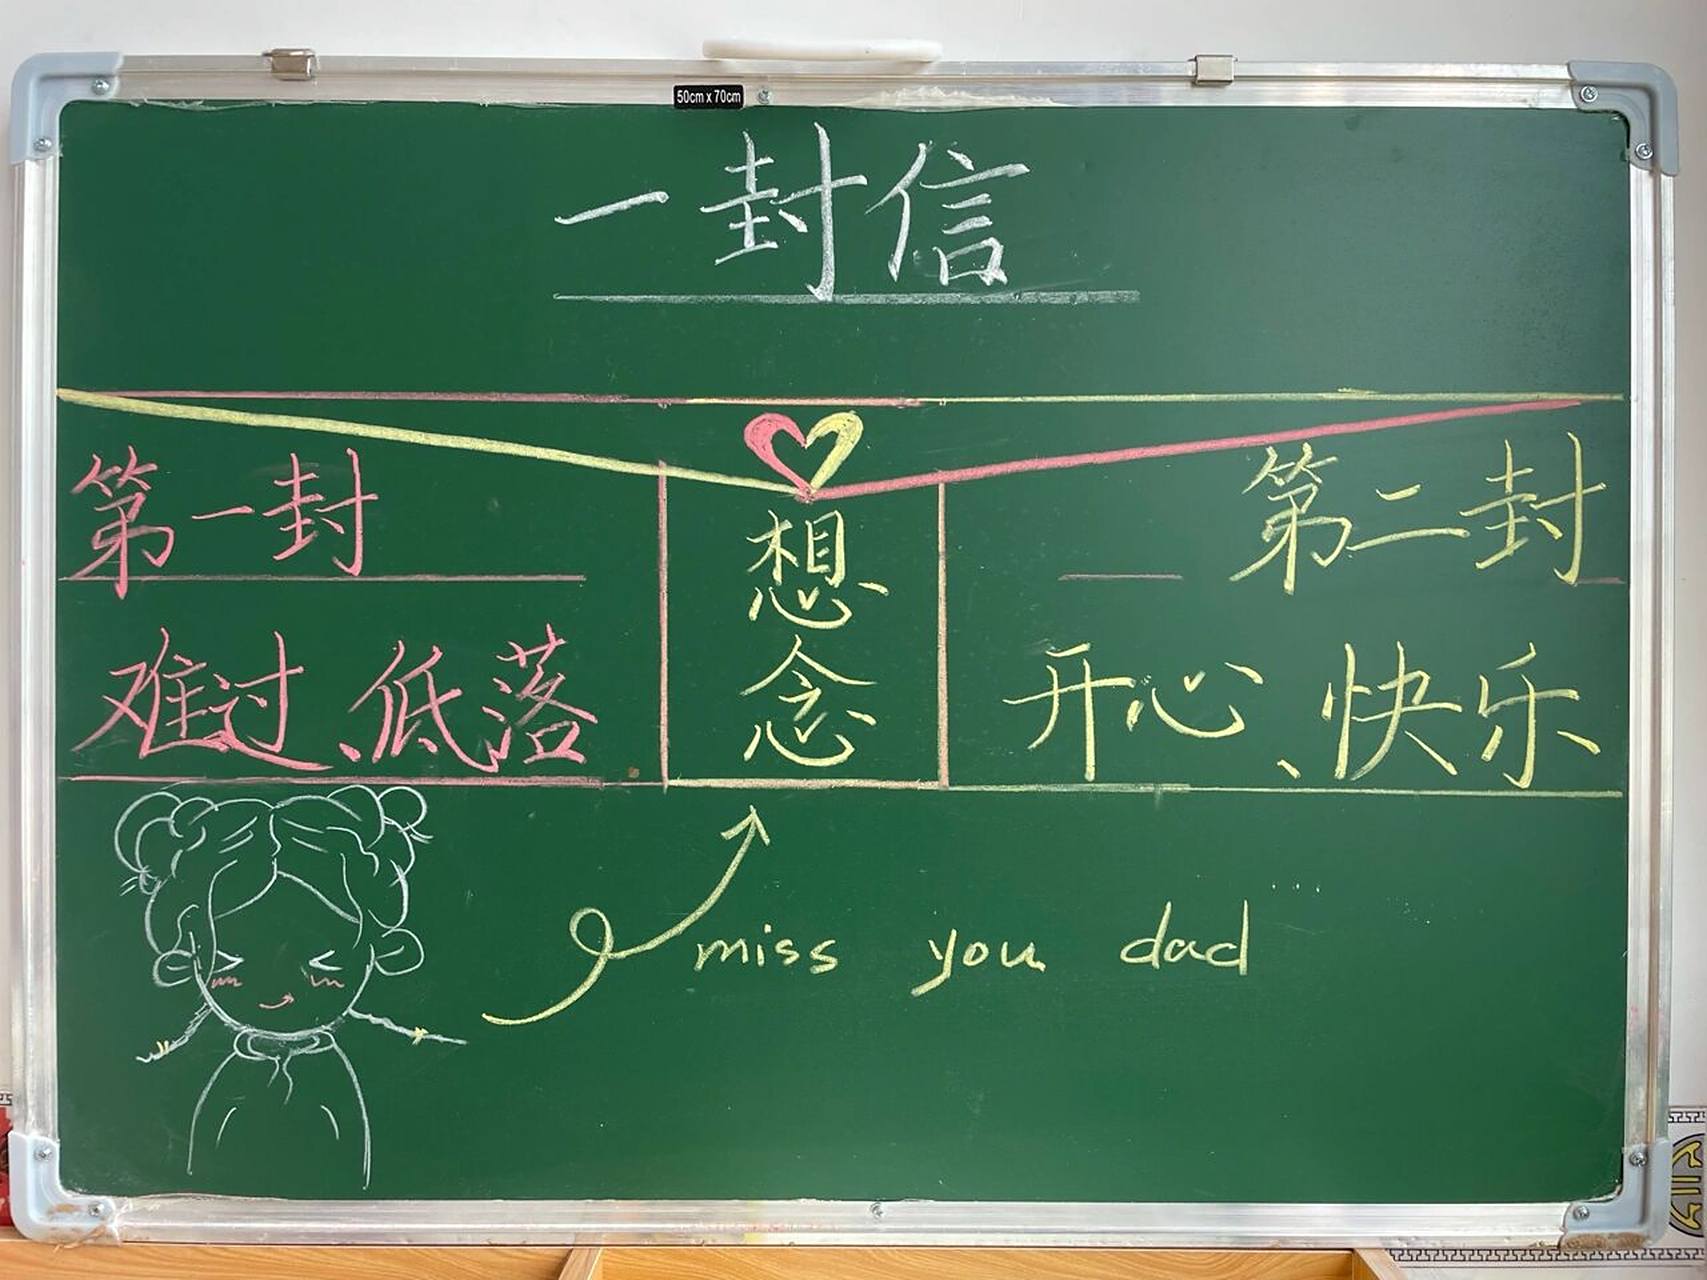 50cm x 70cm
一封信
第一封
第二封
想念
难过、低落
开心、快乐
miss you dad